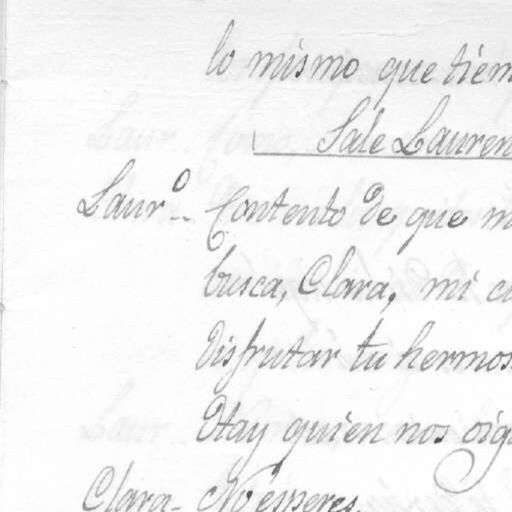 lo mismo que tiem
Sale Lauren
Laurº.. Contento de que m
busca, Clara, mi c
disfrutar tu hermos
Hay quien nos oig
Clara- No esperes.